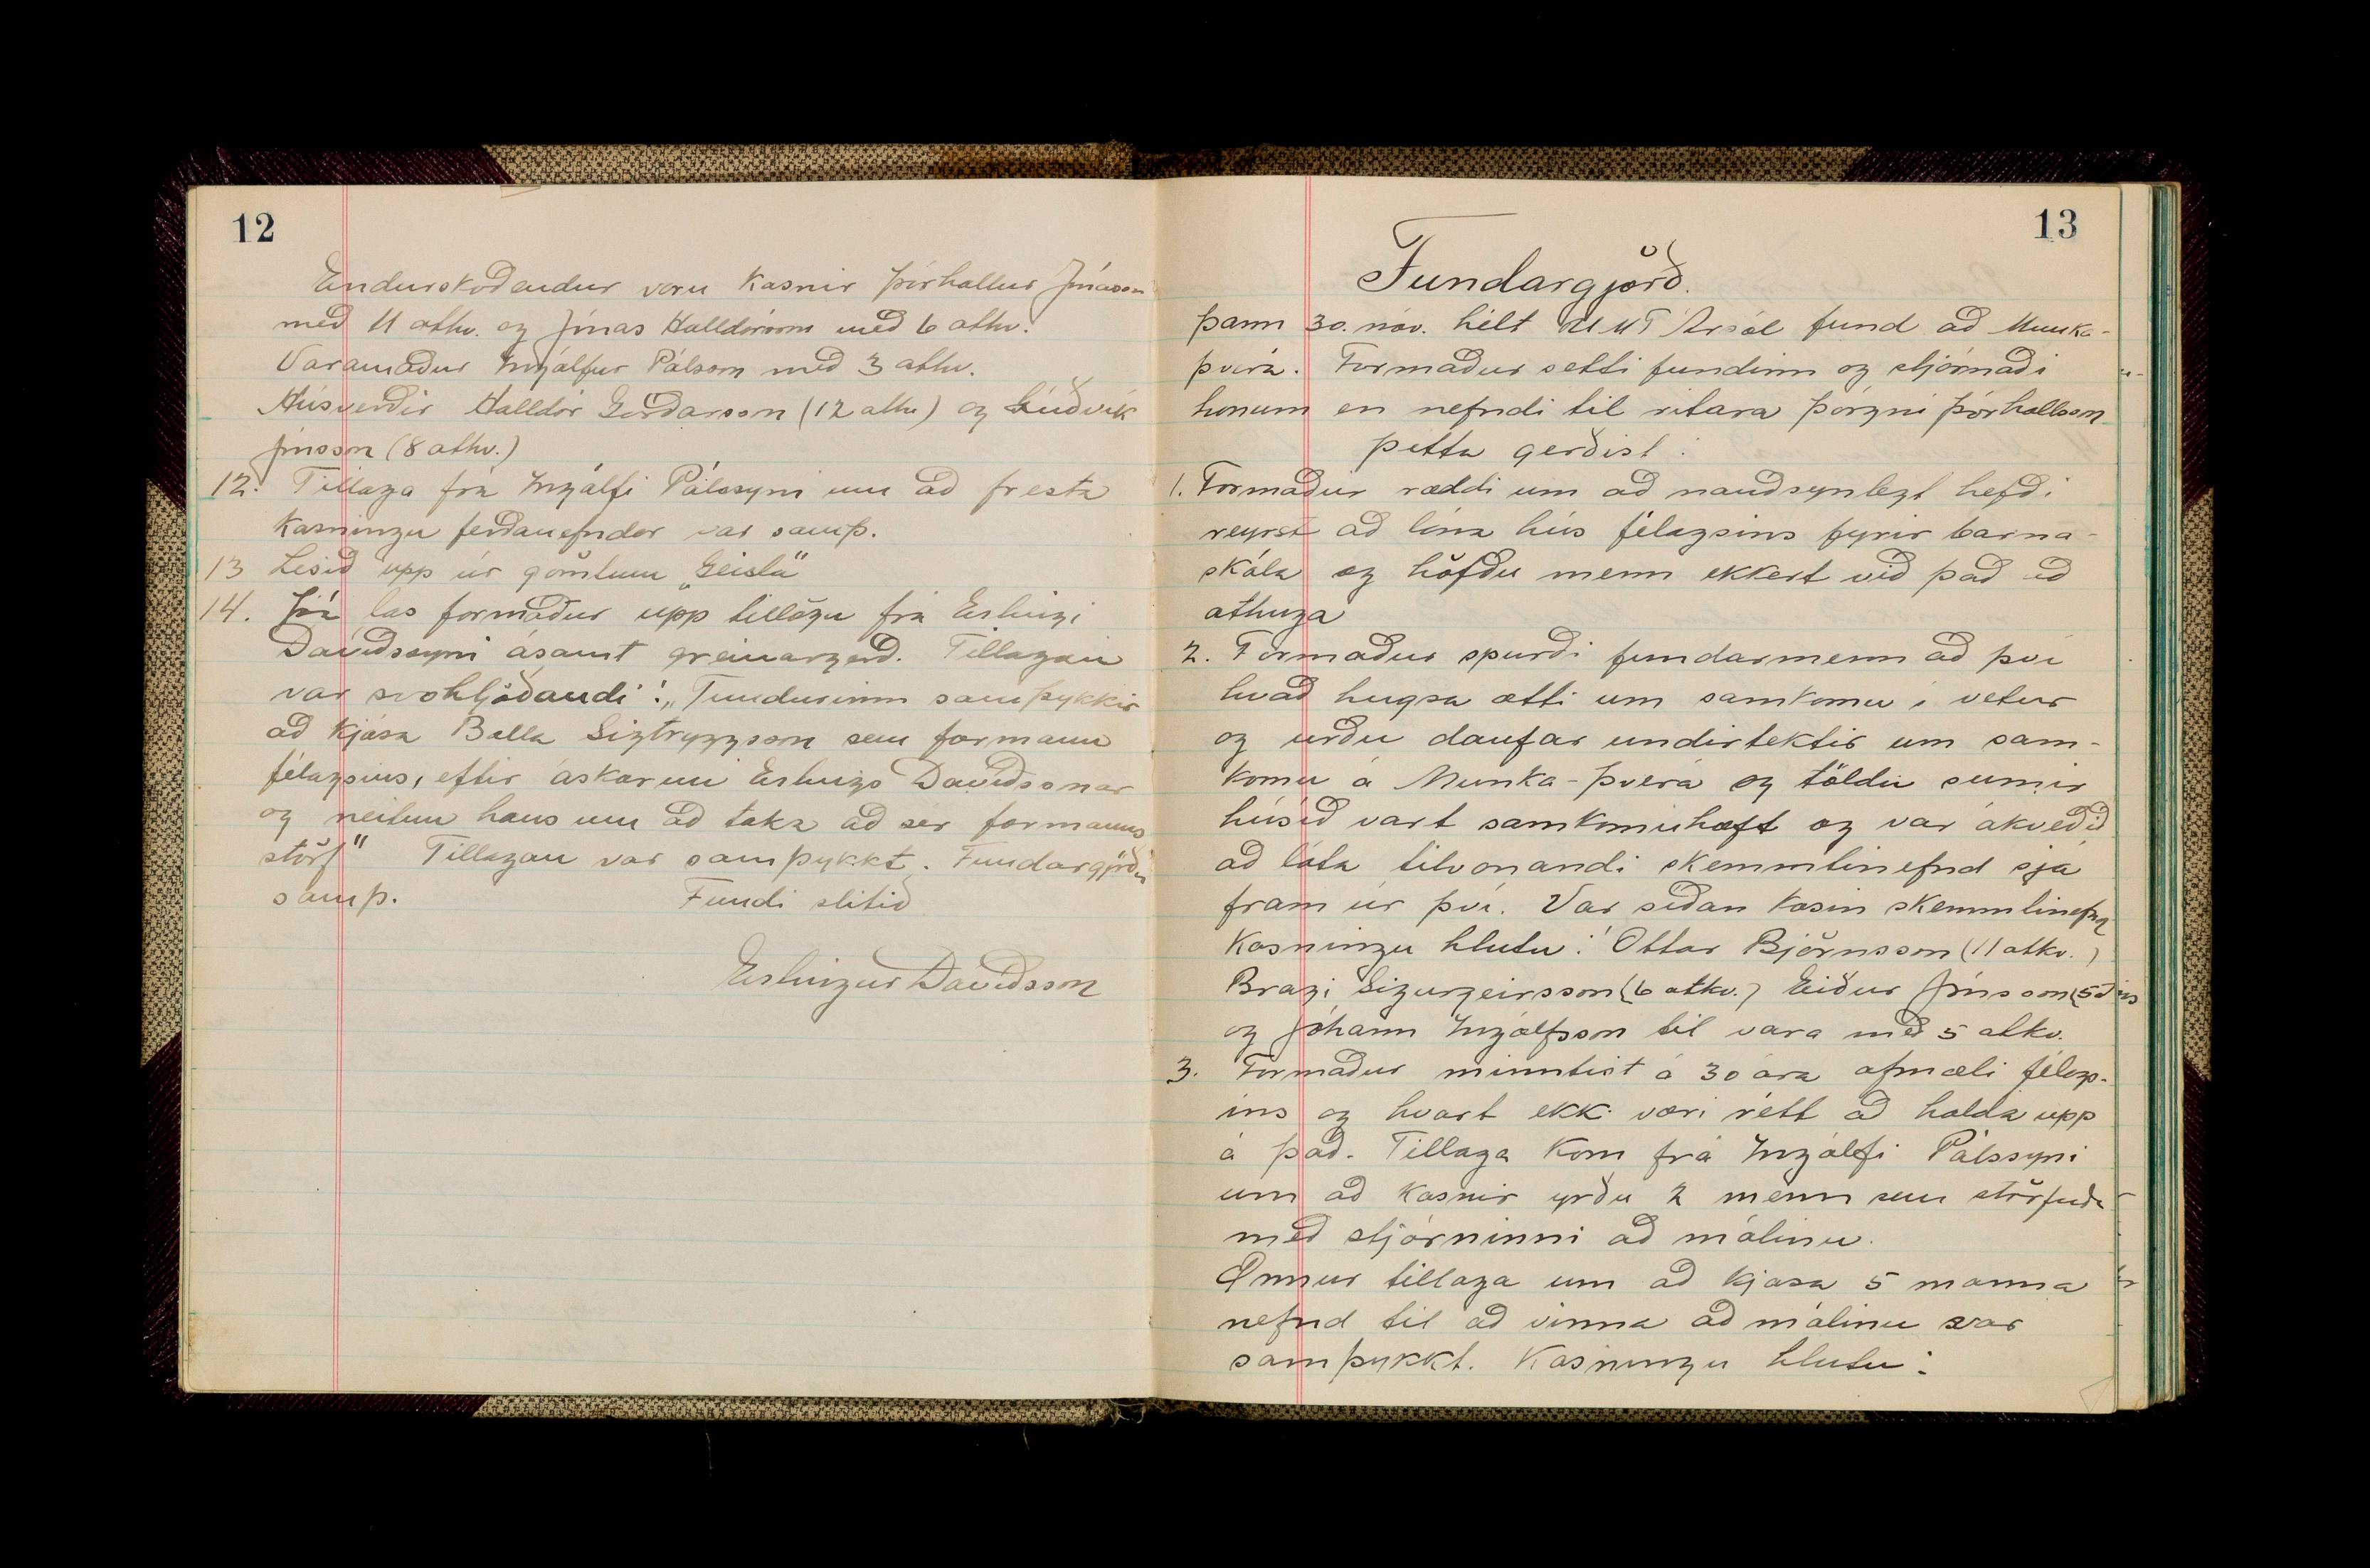 12
Endurskoðendur voru kosnir Þórhallur Jónasson
með 11 atkv. og Jónas Halldórsson með 6 atkv.
Varamaður Ingólfur Pálsson með 3 atkv.
Húsverðir Halldór Garðarsson (12 atkv) og Lúðvík
Jónsson (8 atkv.)
12. Tillaga frá Ingólfi Pálssyni um að fresta
kosningu ferðanefndar var samþ.
13 Lesið upp úr gömlum „Geisla"
14. Þá las formaður upp tillögu frá Erlingi
Davíðssyni ásamt greinargerð. Tillagan
var svohljóðandi: „Fundurinn samþykkir
að kjósa Balla Sigtryggsson sem formann
félagsins, eftir áskorun Erlings Davíðssonar
og neitun hans um að taka að sér formanns
störf" Tillagan var samþykkt. Fundargjörðin
samþ. Fundi slitið
Erlingur Davíðsson
13
Fundargjörð.
Þann 30. nóv. hélt UMF Ársól fund að Munka-
þverá. Formaður setti fundinn og stjórnaði
honum en nefndi til ritara Þorgný Þórhallsson
Þetta gerðist:
1. Formaður ræddi um að nauðsynlegt hefði
reynst að lána hús félagsins fyrir barna-
skóla og höfðu menn ekkert við það að
athuga
2. Formaður spurði fundarmenn að því
hvað hugsa ætti um samkomu í vetur
og urðu daufar undirtektir um sam-
komu á Munka-þverá og töldu sumir
húsið vart samkomuhæft og var ákveðið
að láta tilvonandi skemmtinefnd sjá
fram úr því. Var síðan kosin skemmtinefnd
Kosningu hlutu: Ottar Björnsson (11 atkv.)
Bragi Sigurgeirsson (6 atkv.) Eiður Jónsson (5
og Jóhann Ingólfsson til vara með 5 atkv.
3. Formaður minntist á 30 ára afmæli félags-
ins og hvort ekki væri rétt að halda upp
á það. Tillaga kom frá Ingólfi Pálssyni
um að kosnir yrðu 2 menn sem störfuðu
með stjórninni að málinu.
Önnur tillaga um að kjósa 5 manna
nefnd til að vinna að málinu var
samþykkt. Kosningu hlutu: